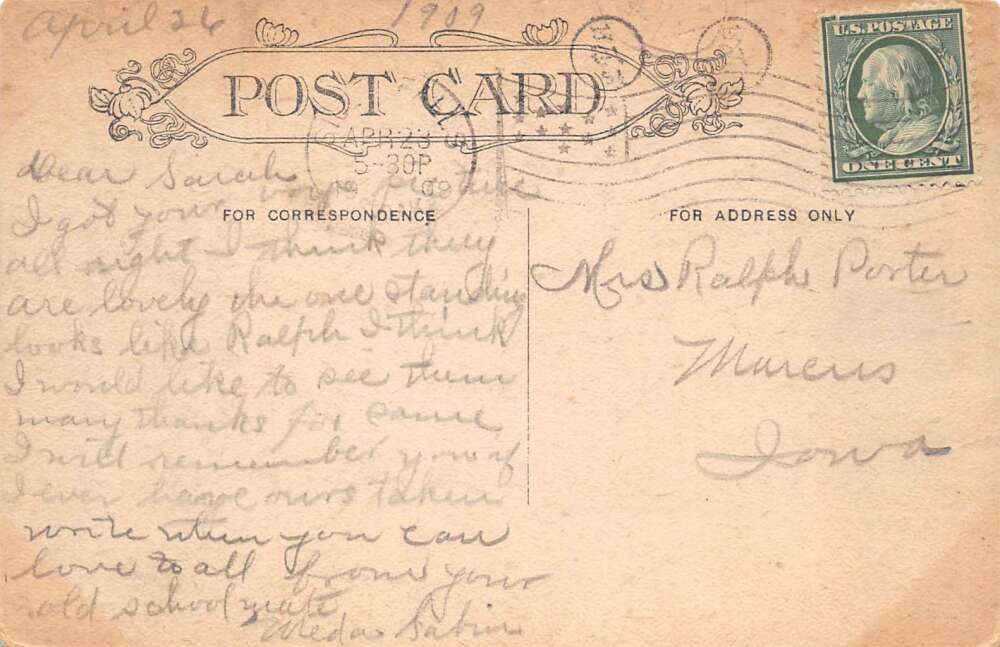 April 26 1909
POST CARD
U.S. POSTAGE
ONE CENT
APR 23
5-30P
09
FOR CORRESPONDENCE
FOR ADDRESS ONLY
Dear Sarah
I got your picture
all right I think they
are lovely the one standing
looks like Ralph I think
I would like to see them
many thanks for same
I will remember you if
I ever have ours taken
write when you can
love to all from your
old schoolmate
Meda Sabin
Mrs Ralph Porter
Marcus
Iowa